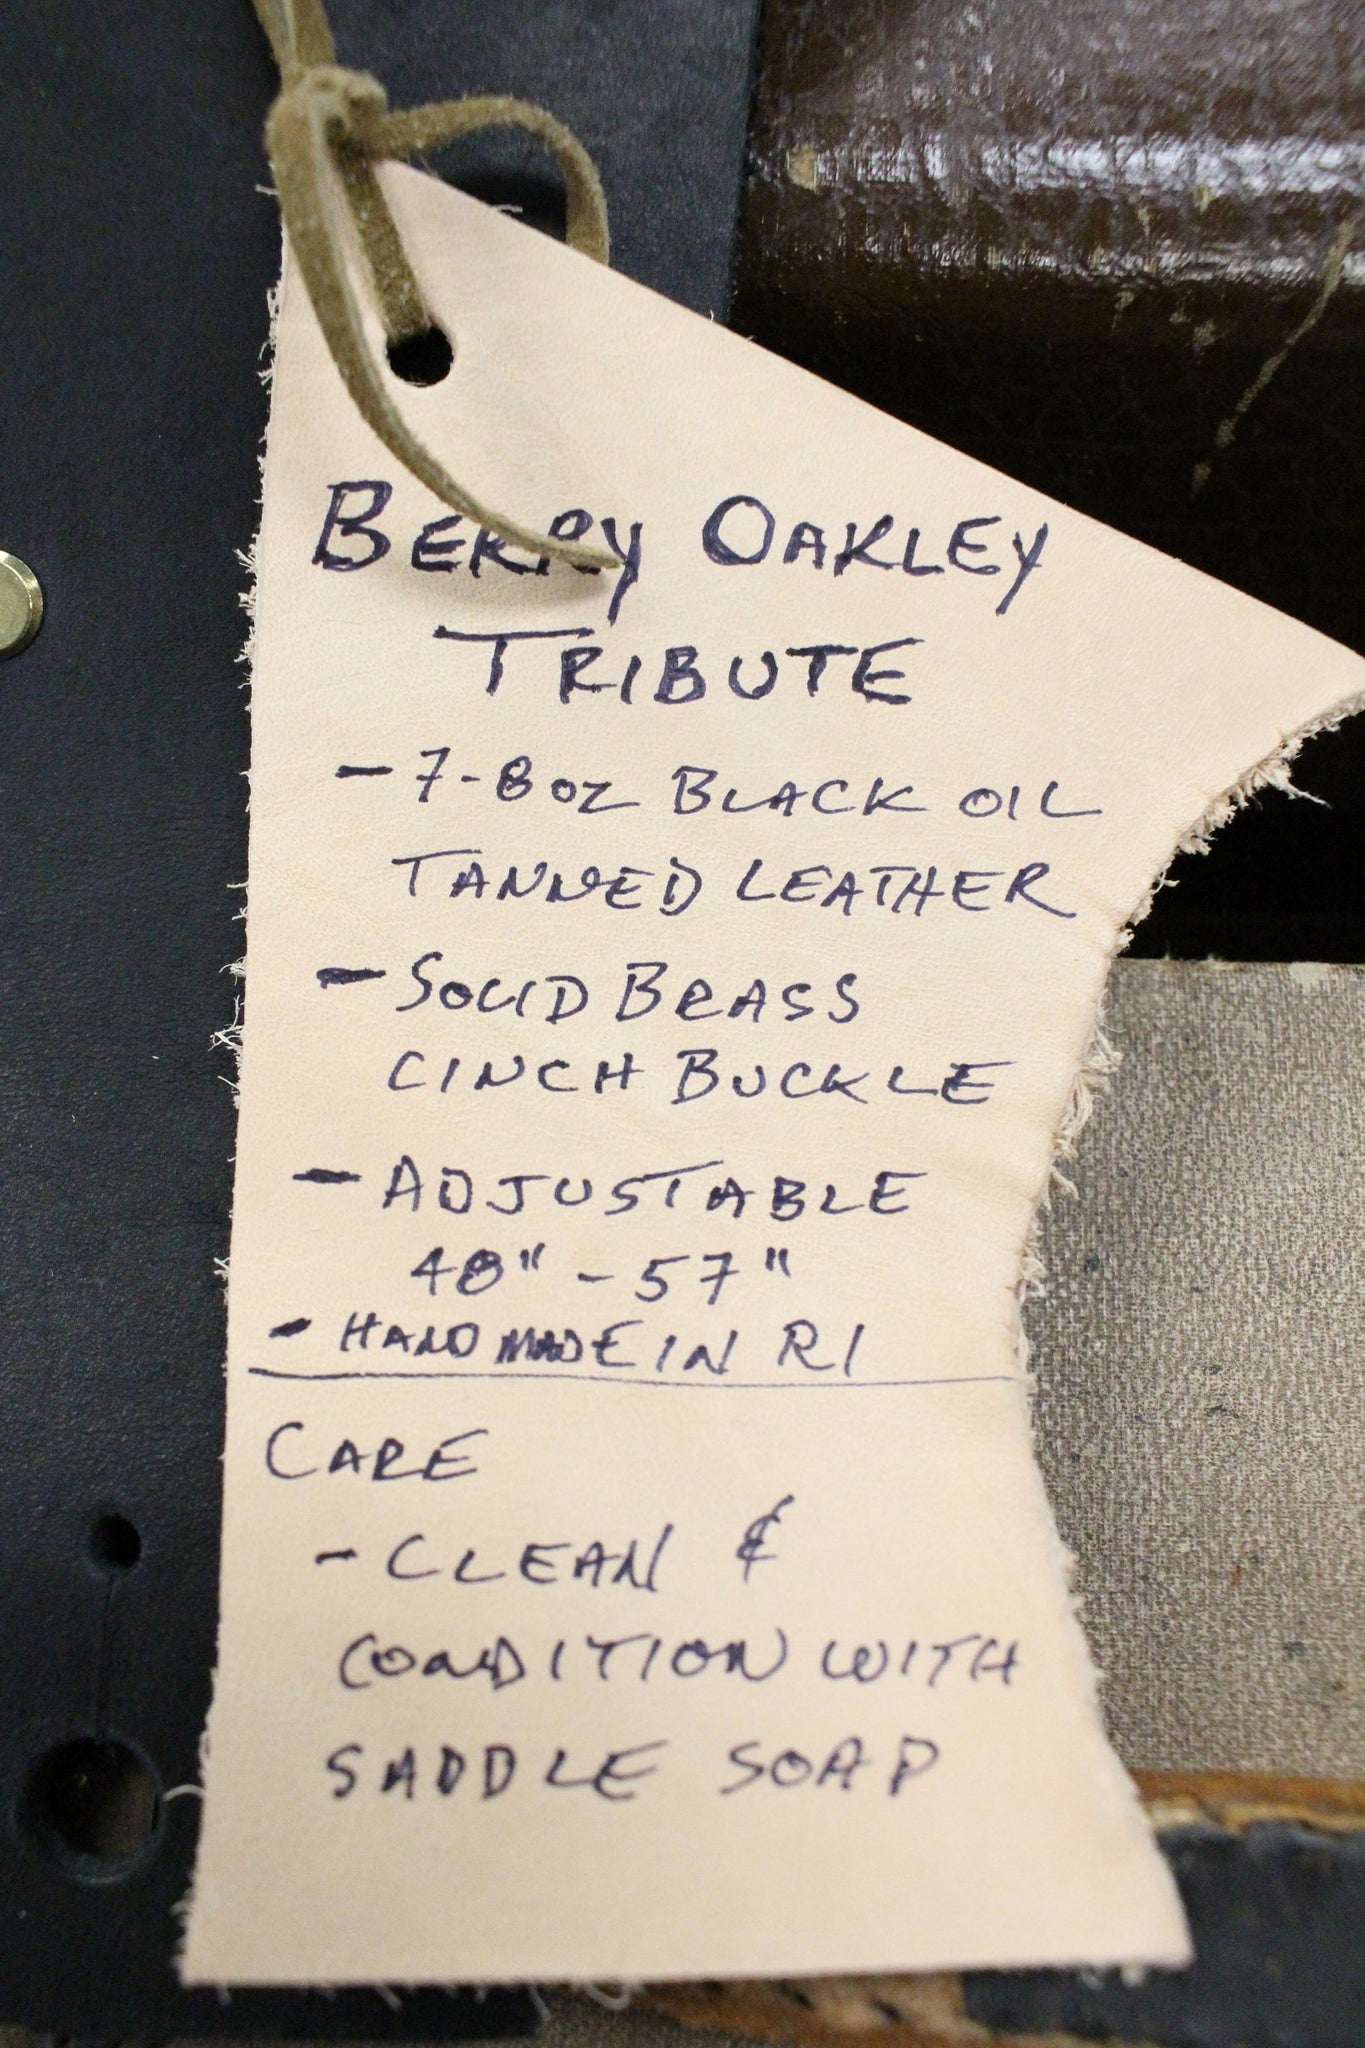 BERRY OAKLEY
TRIBUTE
- 7-8 OZ BLACK OIL
TANNED LEATHER
- SOLID BRASS
CINCH BUCKLE
- ADJUSTABLE
48" - 57"
- HANDMADE IN RI
CARE
- CLEAN &
CONDITION WITH
SADDLE SOAP